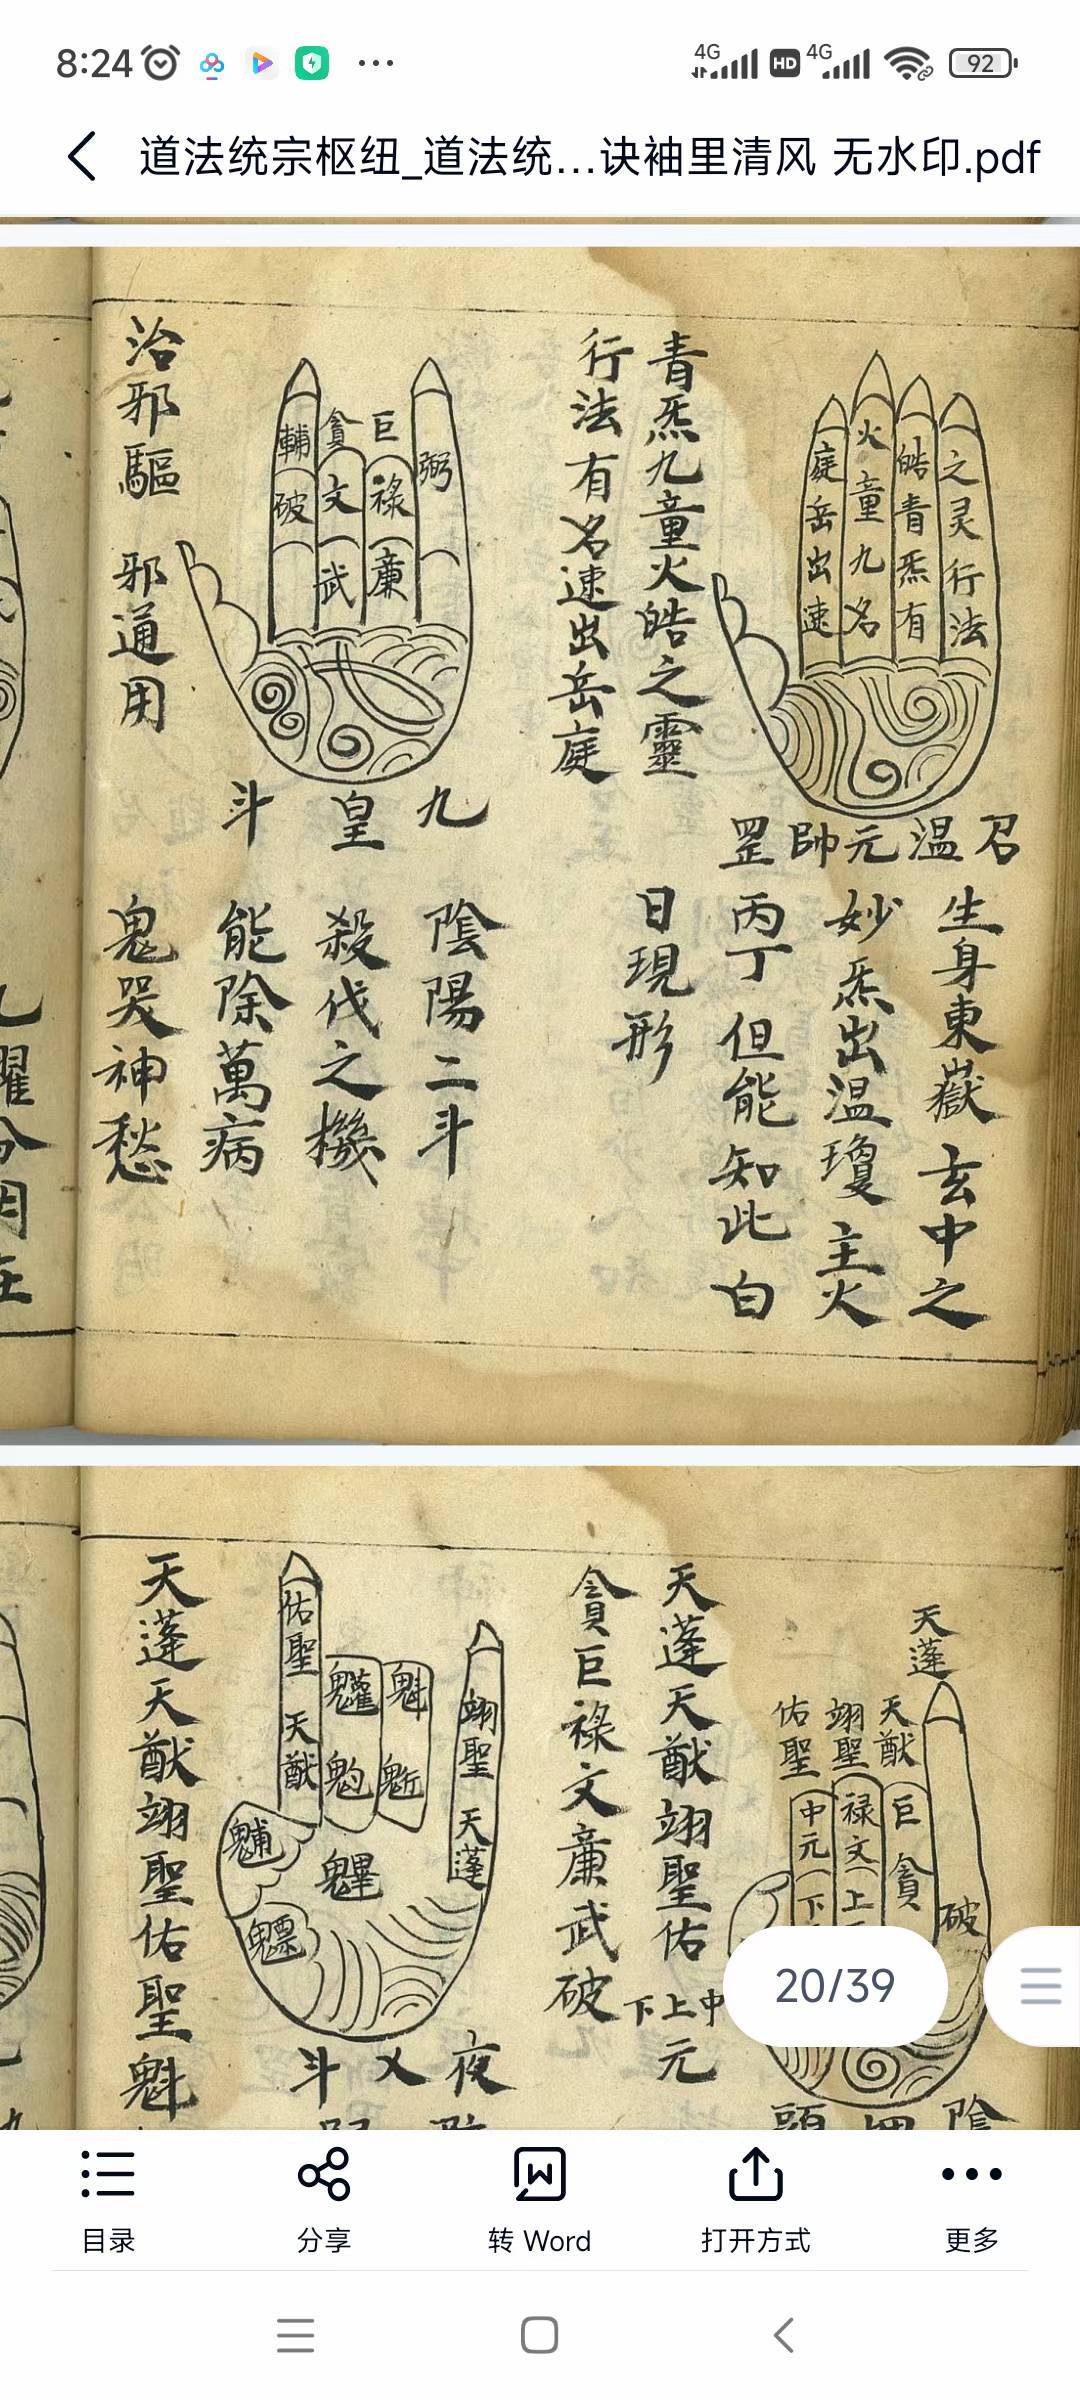 8:24
4G HD 4G 92
道法统宗枢纽_道法统…诀袖里清风 无水印.pdf
之灵行法
皓青炁有
火童九名
庭岳出速
召温元帥罡
生身東嶽玄中之
妙炁出温瓊主火
丙丁但能知此白
日現形
青炁九童火皓之靈
行法有名速出岳庭
弼
巨
祿
廉
貪
文
武
輔
破
九皇斗
陰陽二斗
殺伐之機
能除萬病
鬼哭神愁
治邪驅邪通用
天蓬
天猷
翊聖
佑聖
破
巨
貪
祿
文
上
中元
下
陰
天蓬天猷翊聖佑
中上下元
貪巨祿文廉武破
翊聖
天蓬
魁
魓
魒
佑聖
天猷
夜乂斗
天蓬天猷翊聖佑聖魁
20/39
目录
分享
转 Word
打开方式
更多